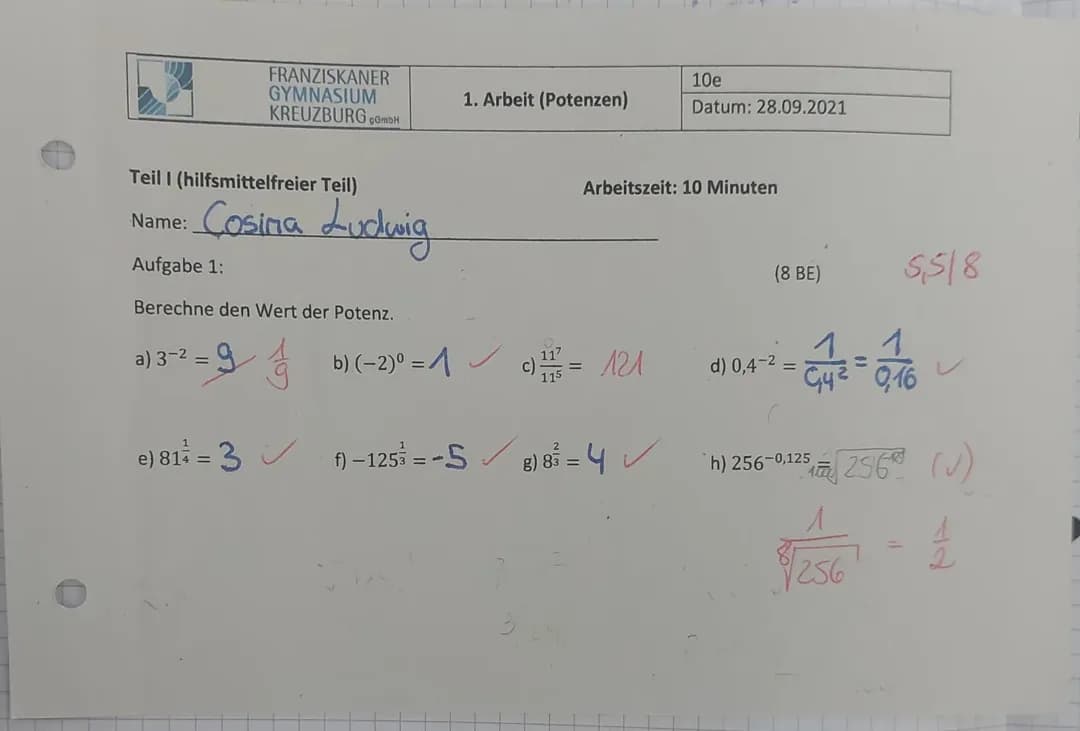 FRANZISKANER
GYMNASIUM
KREUZBURG gGmbH
1. Arbeit (Potenzen)
10e
Datum: 28.09.2021
Teil I (hilfsmittelfreier Teil)
Arbeitszeit: 10 Minuten
Name: Cosima Ludwig
Aufgabe 1:
(8 BE)
5,5/8
Berechne den Wert der Potenz.
a) 3⁻² = 9 1/9
b) (−2)⁰ = 1 ✓
c) 11⁷/11⁵ = 121
d) 0,4⁻² = 1/0,4² = 1/0,16 ✓
e) 81^(1/4) = 3 ✓
f) −125^(1/3) = -5 ✓
g) 8^(2/3) = 4 ✓
h) 256^(−0,125) = √256 (✓)
1/⁸√256 = 1/2